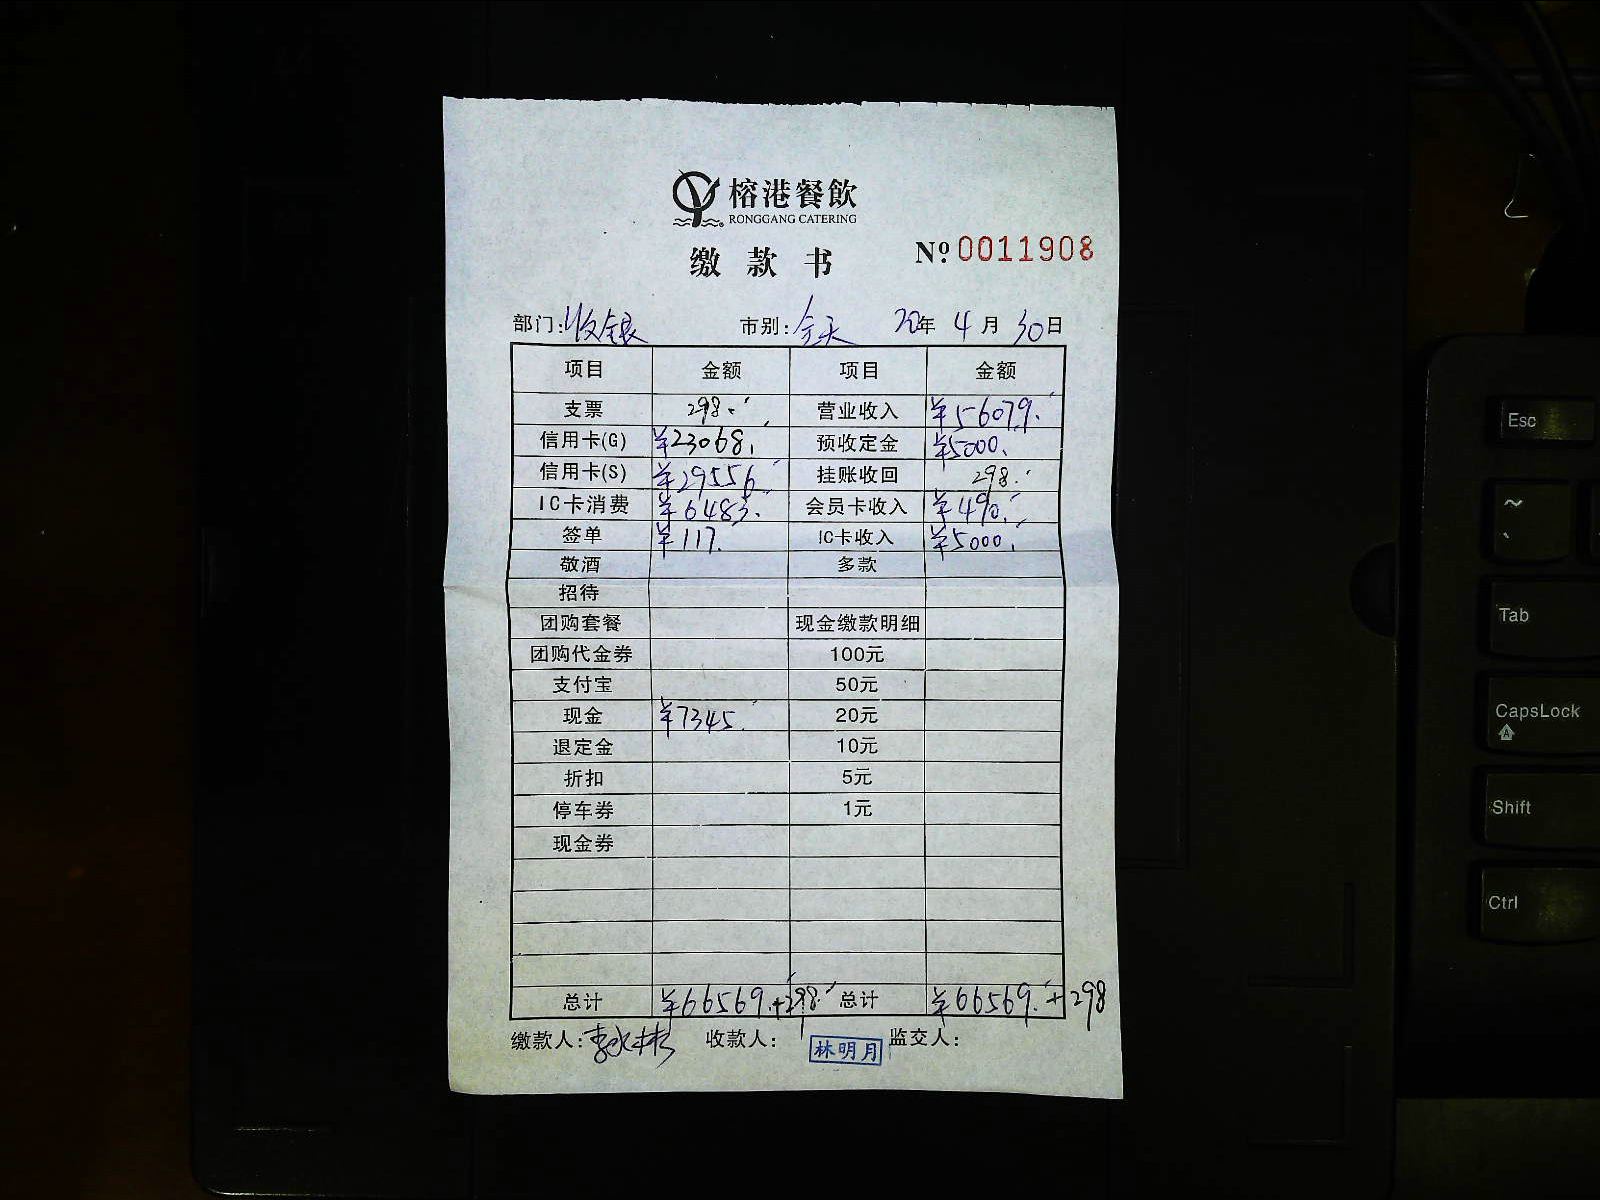 榕港餐飲
RONGGANG CATERING
缴款书
Nº 0011908
部门:收银 市别:全天 20年4月30日
项目 金额 项目 金额
支票 298.- 营业收入 ¥56079.-
信用卡(G) ¥23068.- 预收定金 ¥5000.-
信用卡(S) ¥29556.- 挂账收回 298.-
IC卡消费 ¥6483.- 会员卡收入 ¥490.-
签单 ¥117.- IC卡收入 ¥5000.-
敬酒 多款
招待
团购套餐 现金缴款明细
团购代金券 100元
支付宝 50元
现金 ¥7345.- 20元
退定金 10元
折扣 5元
停车券 1元
现金券
总计 ¥66569.-+298.- 总计 ¥66569.-+298
缴款人: 收款人: 林明月 监交人:
Esc
~
Tab
CapsLock
A
Shift
Ctrl